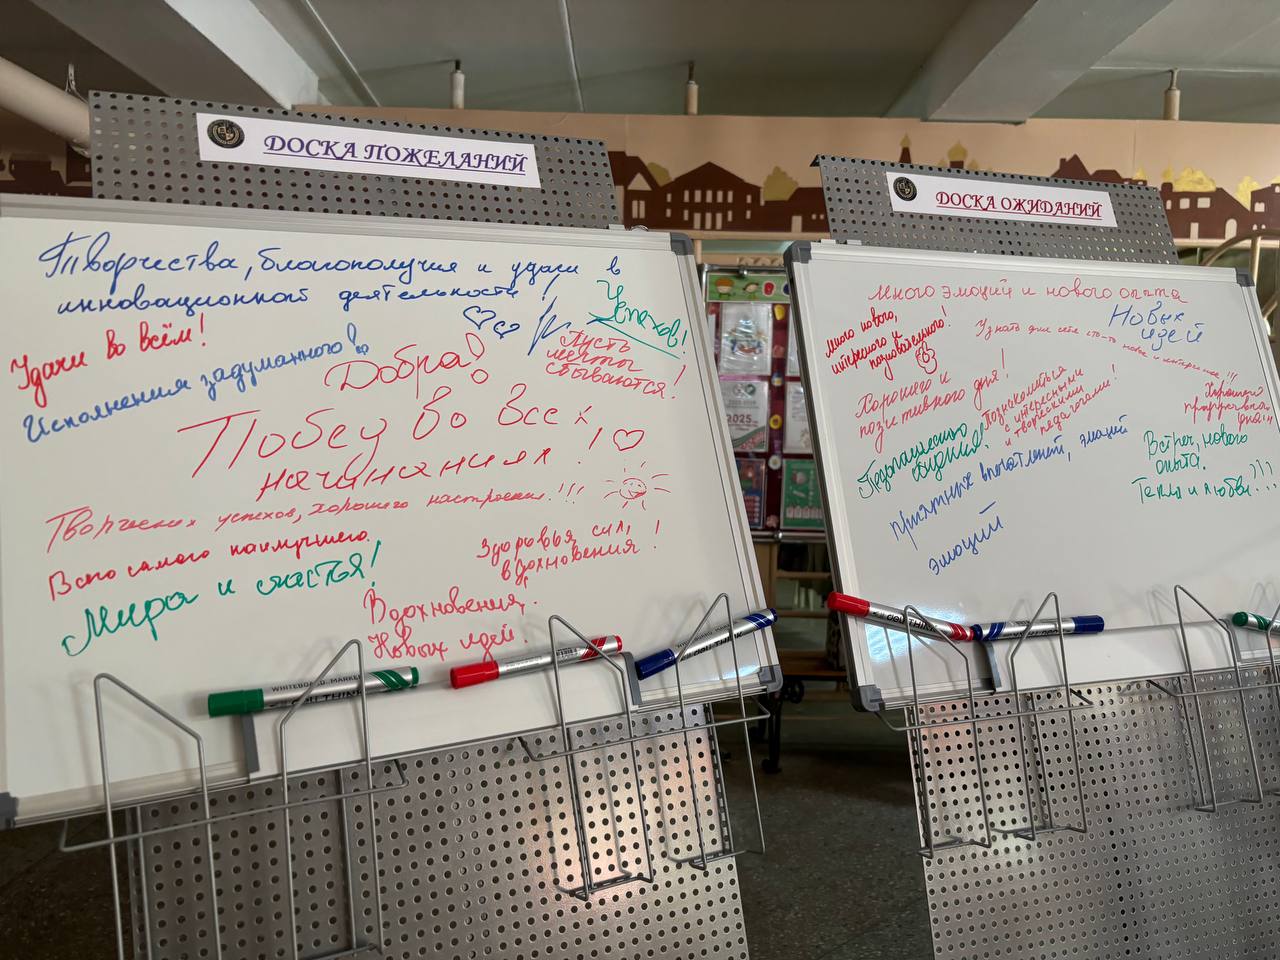 ДОСКА ПОЖЕЛАНИЙ
Творчества, благополучия и удачи в
инновационной деятельности!
Успехов!
Удачи во всём!
Исполнения задуманного!
Добра!
Пусть
мечты
сбываются!
Побед во всех
начинаниях!
Творческих успехов, хорошего настроения!!!
Всего самого наилучшего.
Мира и счастья!
Здоровья, сил,
вдохновения!
Вдохновения,
Новых идей.
WHITEBOARD MARKER
deli THINK
deli THINK
ДОСКА ОЖИДАНИЙ
Много эмоций и нового опыта
Много нового,
интересного и
познавательного!
Узнать для себя что-то новое и интересное!!!
Новых
идей
Хорошего и
позитивного дня!
Познакомиться
с интересными
и творческими
педагогами!
Хорошего
продуктивного
дня!!!
Педагогического
общения!
Встреч, нового
опыта.
Тепла и любви!!!
приятных впечатлений, эмоций
эмоций
deli THINK
2025